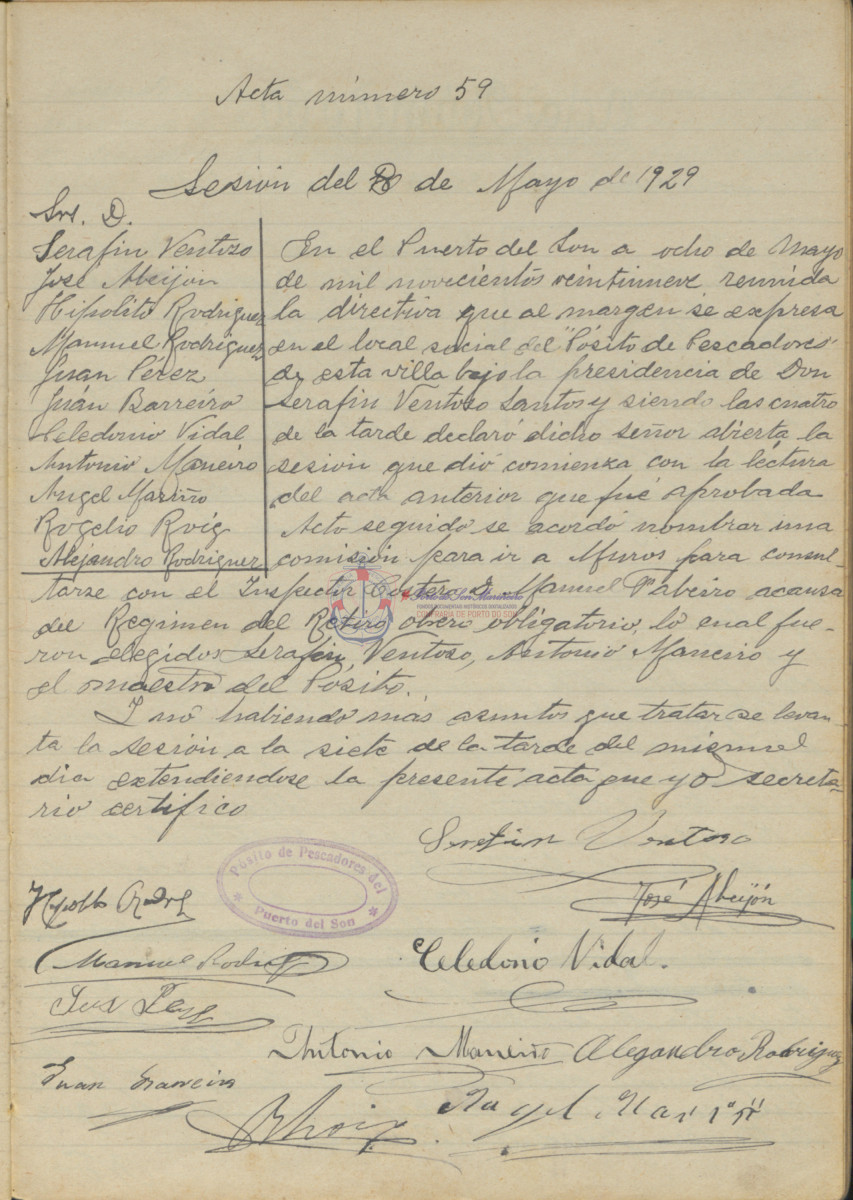 Acta número 59
Sesión del 8 de Mayo de 1929
Srs. D.
Serafin Ventoso
José Abeijon
Hipolito Rodriguez
Manuel Rodriguez
Juan Pérez
Juan Barreiro
Celedonio Vidal
Antonio Maneiro
Angel Mariño
Rogelio Roig
Alejandro Rodriguez
En el Puerto del Son a ocho de Mayo
de mil novecientos veintinueve reunida
la directiva que al margen se expresa
en el local social del "Pósito de Pescadores"
de esta villa bajo la presidencia de Don
Serafin Ventoso Santos y siendo las cuatro
de la tarde declaró dicho señor abierta la
sesión que dió comienza con la lectura
del acta anterior que fué aprobada
Acto seguido se acordó nombrar una
comisión para ir a Muros para consul-
tarse con el Inspector Costero D. Manuel acausa
del Regimen del Retiro obrero obligatorio, lo cual fue-
ron elegidos Serafin Ventoso, Antonio Maneiro y
el maestro del Posito.
Y no habiendo más asuntos que tratar se levan-
ta la sesión a la siete de la tarde del
dia extendiendose la presente acta que yo secreta-
rio certifico
Serafin Ventoso
Pósito de Pescadores del
Puerto del Son
José Abeijón
Manuel
Celedonio Vidal.
Juan
Antonio Maneiro Alejandro Rodriguez
Juan Barreiro
Angel Mariño
CONFRARIA DE PORTO DO SON